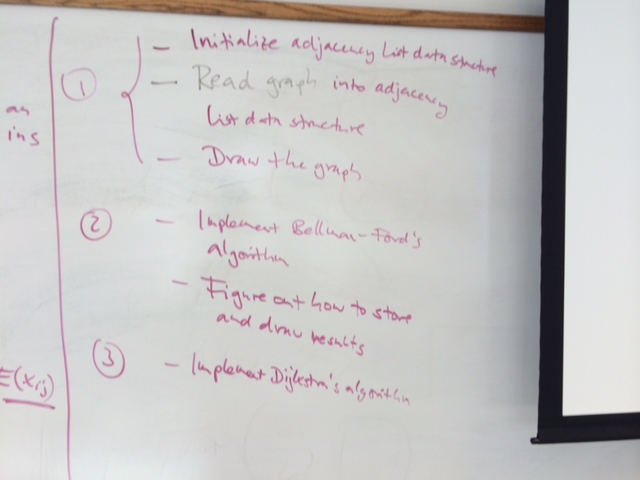 an
ins
① - Initialize adjacency list data structure
- Read graph into adjacency
list data structure
- Draw the graph
② - Implement Bellman-Ford's
algorithm
- Figure out how to store
and draw results
③ - Implement Dijkstra's algorithm
E(Xij)